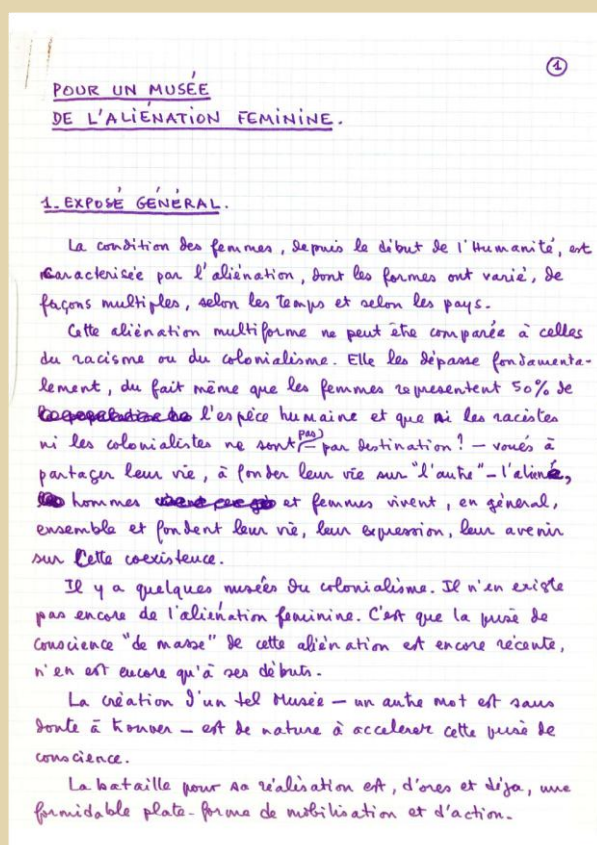 ①
POUR UN MUSÉE
DE L'ALIÉNATION FEMININE.
1. EXPOSÉ GÉNÉRAL.
La condition des femmes, depuis le début de l'Humanité, est
caracterisée par l'aliénation, dont les formes ont varié, de
façons multiples, selon les temps et selon les pays.
Cette aliénation multiforme ne peut être comparée à celles
du racisme ou du colonialisme. Elle les dépasse fondamenta-
lement, du fait même que les femmes représentent 50% de
l'espèce humaine et que ni les racistes
ni les colonialistes ne sont pas, par destination! – voués à
partager leur vie, à fonder leur vie sur "l'autre" – l'aliéné,
hommes et femmes vivent, en général,
ensemble et fondent leur vie, leur expression, leur avenir
sur Cette coexistence.
Il y a quelques musées du colonialisme. Il n'en existe
pas encore de l'aliénation feminine. C'est que la prise de
conscience "de masse" de cette aliénation est encore récente,
n'en est encore qu'à ses débuts.
La création d'un tel Musée – un autre mot est sans
doute à trouver – est de nature à accelerer cette prise de
conscience.
La bataille pour sa réalisation est, d'ores et déja, une
formidable plate-forme de mobilisation et d'action.